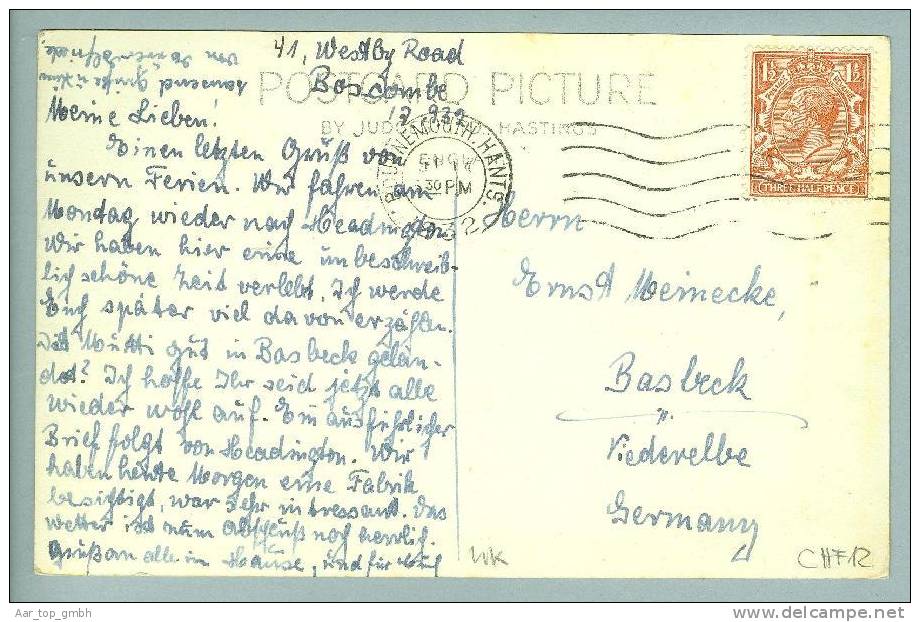 41, Westby Road
Boscombe
POSTCARD PICTURE
BY JUDGES HASTINGS
12 9 32
BOURNEMOUTH. HANTS.
30 PM
1932
1½ 1½
THREE HALFPENCE
Meine Lieben!
Einen letzten Gruß von
unsern Ferien. Wir fahren am
Montag wieder nach Headington
Wir haben hier eine unbeschreib-
lich schöne Zeit verlebt. Ich werde
Euch später viel davon erzählen.
Ist Mutti gut in Basbeck gelan-
det? Ich hoffe Ihr seid jetzt alle
wieder wohl auf. Ein ausführlicher
Brief folgt von Headington. Wir
haben heute Morgen eine Fabrik
besichtigt, war sehr intressant. Das
Wetter ist zum Abschluß noch herrlich.
Gruß an alle im Hause, und für Euch
tausend Grüße u.
von Eurer
Herrn
Ernst Meinecke,
Basbeck
Niederelbe
Germany
WK
CHF12
Aar_top_gmbh
www.delcampe.net